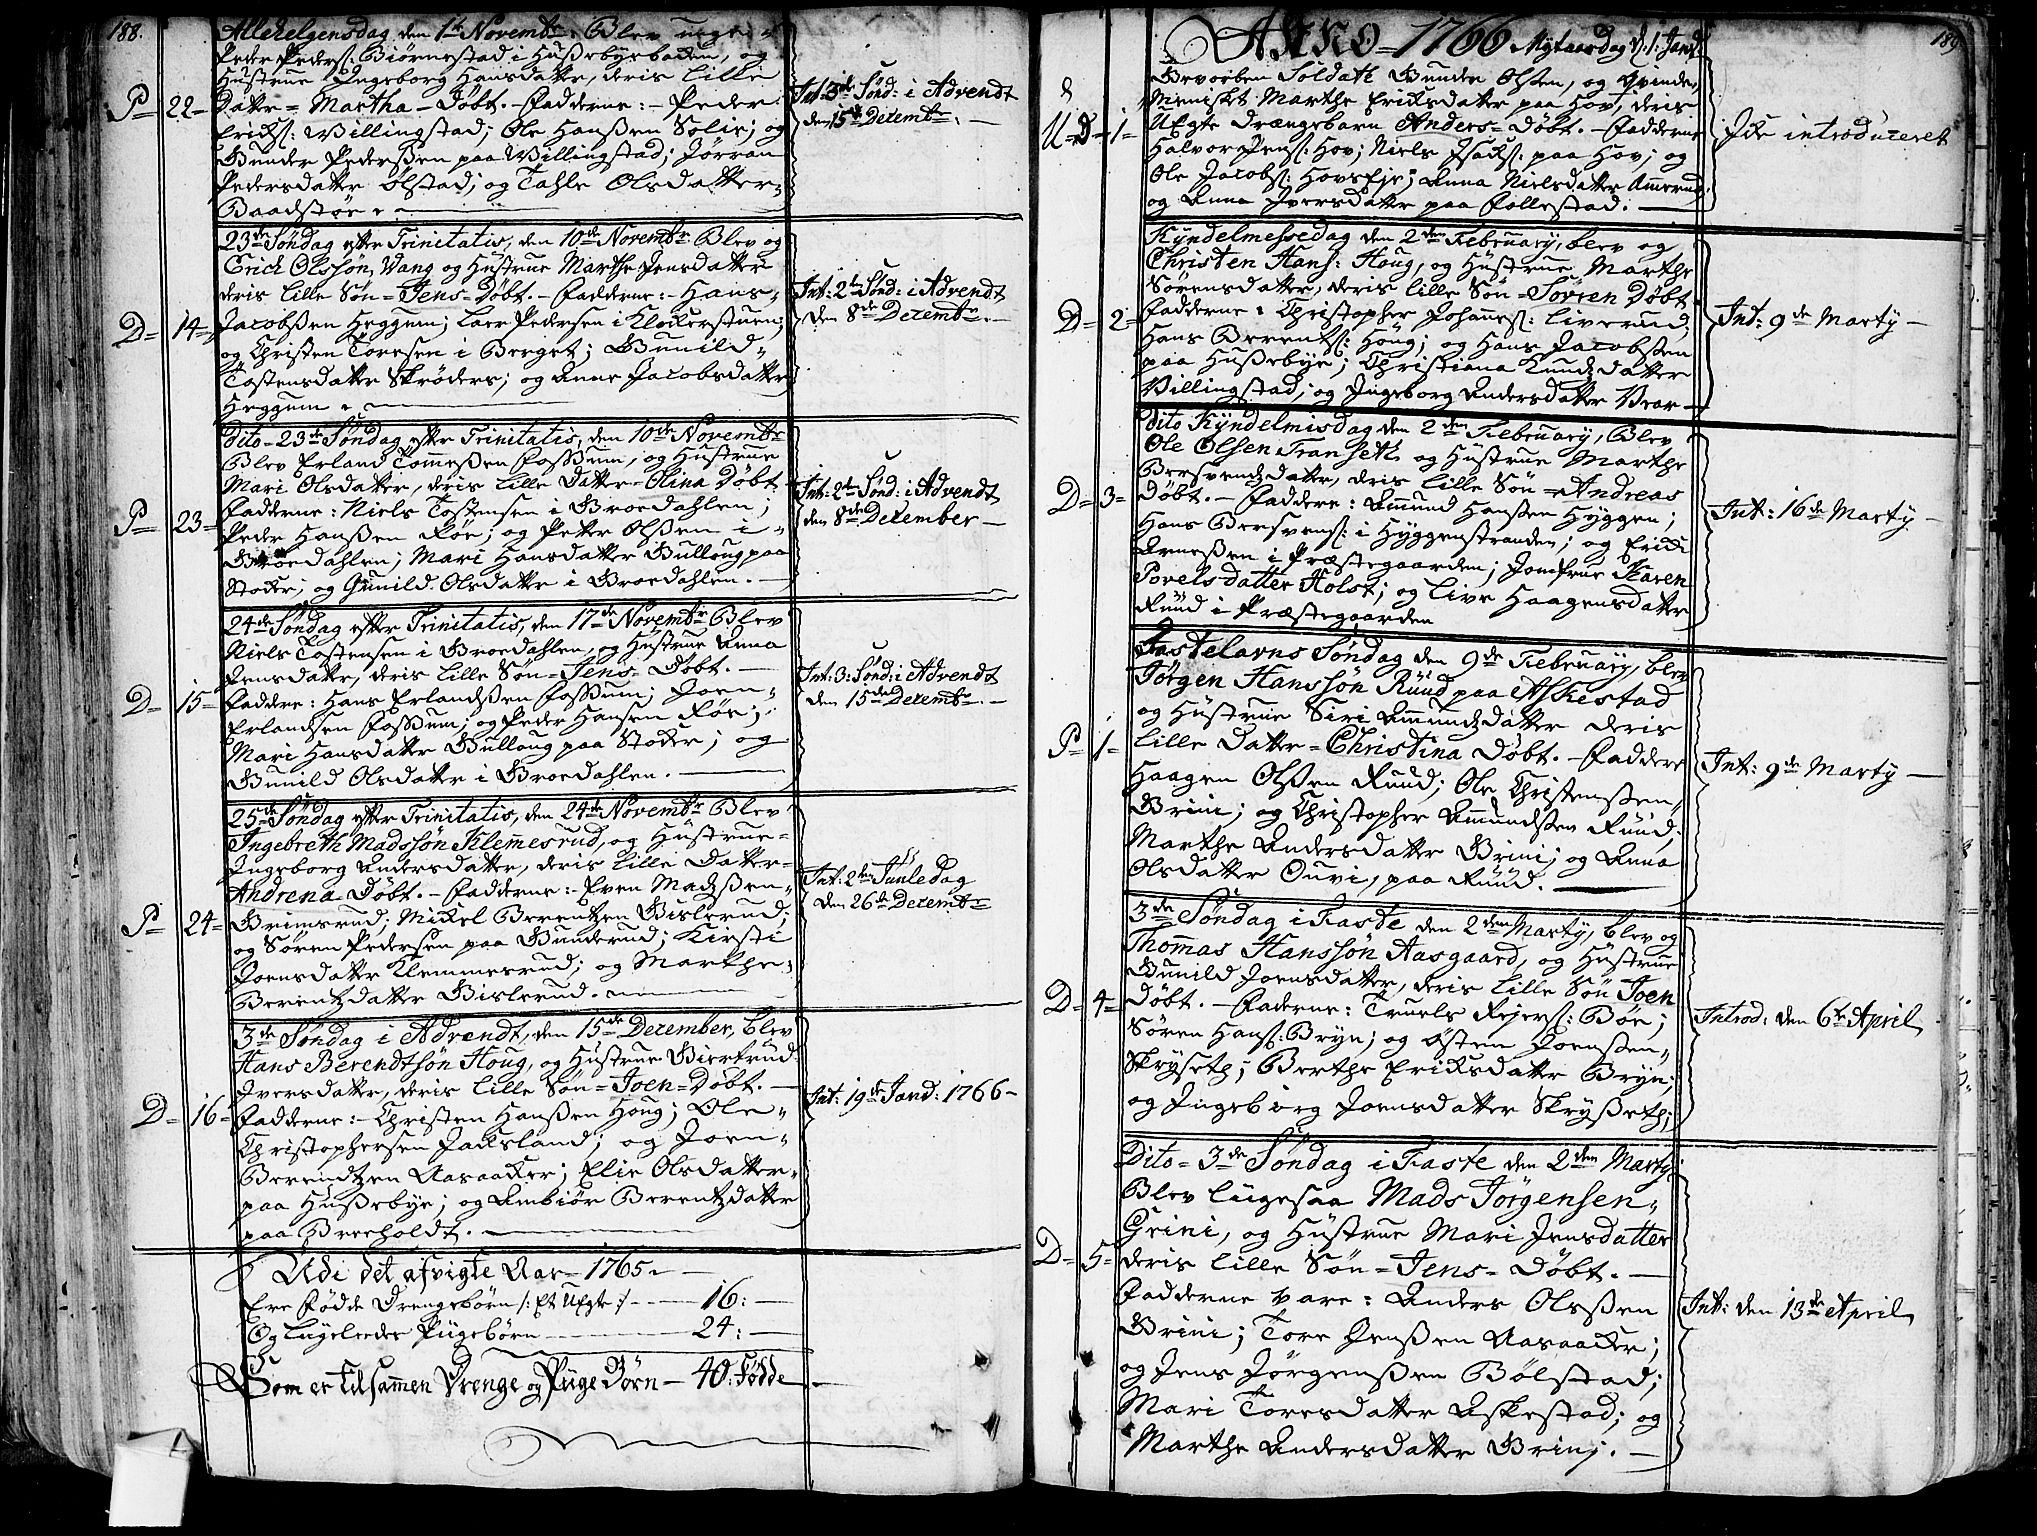 188.
Allehelgensdag den 1te Novembr: Blev
Peder Peders: Biørnestad i Hussebyebaden, og
Hustrue Ingeborg Hansdatter, deris lille
P= 22= Datter = Martha = Døbt. - Fadderne: - Peder
Erichs: Willingstad; Ole Hanssen Solie; og
Gunder Pederssen paa Willingstad; Jørran
Pedersdatter Ølstad; og Tahle Olsdatter
Baadstøe.
Int: 3de Sønd: i Advendt
den 15de Decembr.
23de Søndag efter Trinitatis, den 10de Novembr Blev og
Erich Olssøn Vang og Hustrue Marthe Jensdatter
deris lille Søn = Jens = Døbt. - Fadderne: - Hans
D= 14= Jacobssen Heggum; Lars Pedersen i Klockerstuen;
og Christen Toresen i Berget; Gunild
Tostensdatter Skrøders; og Anne Jacobsdatter
Heggum.
Int: 2den Sønd: i Advendt
den 8de Decembr.
Dito = 23de Søndag efter Trinitatis, den 10de Novembr
Blev Erland Tommessen Fossum, og Hustrue
Mari Olsdatter, deris lille Datter = Olina Døbt.
P= 23= Fadderne: Niels Tostensen i Broedahlen;
Peder Hanssen Røe; og Petter Olssen i
Broedahlen; Mari Hansdatter Bulloug paa
Stocker; og Gunild Olsdatter i Broedahlen.
Int: 2den Sønd: i Advendt
den 8de December
24de Søndag efter Trinitatis, den 17de Novembr Blev
Niels Tostensen i Broedahlen, og Hustrue Anna
Jensdatter, deris lille Søn = Jens = Døbt.
D= 15= Faddere: Hans Erlandssen Fossum; Joen
Erlandsen Fossum; og Peder Hansen Røe;
Mari Hansdatter Bulloug paa Stocker; og
Gunild Olsdatter i Broedahlen.
Int: 3: Sønd: i Advendt
den 15de Decembr.
25de Søndag efter Trinitatis, den 24de Novembr Blev
Ingebreth Madssøn Klemmesrud, og Hustrue
Ingeborg Andersdatter, deris lille Datter
Andrena Døbt. - Fadderne: - Even Madssen
P= 24= Grimsrud; Mickel Berentzen Bislerud;
og Søren Pedersen paa Gunderud; Kirsti
Joensdatter Klemmesrud; og Marthe
Berentzdatter Bislerud.
Int: 2den Juuledag
den 26de Decembr
3de Søndag i Advendt, den 15de December, blev
Hans Berendtsøn Houg, og Hustrue Giertrud
Iversdatter, deris lille Søn = Joen = Døbt.
D= 16= Fadderne: - Christen Hanssen Houg; Ole
Christophersen Jacksland; og Joen
Berendtzen Aasaacker; Elie Olsdatter
paa Hussebye; og Anbiør Berentzdatter
paa Breeholdt.
Int: 19de Janv: 1766
Udi det afvigte Aar = 1765
Ere Fødde Drengebørn /: Et Uægte :/ 16:
Og Ligeleedes Pigebørn 24:
Som er tilsammen Drenge og Pige Børn - 40: Fødde
189
ANNO = 1766 Nytaarsdag d. 1: Janv:
Bevorben Soldatt Gunder Olsen, og Qvinde
Mennisket Marthe Ericksdatter paa Hov, deris
U=D= 1= Uægte Drængebarn Anders = Døbt. - Fadderne
Halvor Jens: Hov; Niels Isachs: paa Hov; og
Ole Jacobs: Hovseje; Anna Nielsdatter Ammerud;
og Anna Iversdatter paa Follestad.
Icke introduceret
Kyndelmessedag den 2den February, blev og
Christen Hans: Houg, og Hustrue Marthe
Sørensdatter, deris lille Søn = Sørren Døbt
D= 2= Fadderne: Christopher Johannes: Liverud;
Hans Berentz: Houg; og Hans Jacobssen
paa Hussebye; Christiana Knudsdatter
Willingstad; og Ingeborg Andersdatter Vear
Int: 9de Marty
Dito Kyndelmisdag den 2den February, Blev
Ole Olsen Transeth og Hustrue Marthe
Bersvendsdatter, deris lille Søn = Andreas
D= 3= Døbt. - Faddere: Amund Hanssen Hyggen;
Hans Bersvens: i Hyggenstranden; og Erick
Arnessen i Præstegaarden; Jomfrue Karen
Povelsdatter Holst; og Live Haagensdatter
Ruud i Præstegaarden
Int: 16de Marty
Fastelavns Søndag den 9de February, blev
Jørgen Hanssøn Ruud paa Askestad
og Hustrue Siri Amundsdatter deris
P= 1= lille Datter = Christina Døbt. - Faddere
Haagen Olssen Ruud; Ole Christenssen
Grini; og Christopher Amundssen Ruud;
Marthe Andersdatter Grini; og Anna
Olsdatter Ouvi, paa Ruud.
Int: 9de Marty
3de Søndag i Faste den 2den Marty, blev og
Thommas Hanssøn Aasgaard, og Hustrue
Gunild Joensdatter, deris lille Søn Joen
D= 4= Døbt. - Fadderne: Truels Rejers: Bøe;
Søren Hans: Bryn; og Østen Joenssen
Skryseth; Berthe Ericksdatter Bryn;
og Ingeborg Joensdatter Skrysseth;
Introd: den 6te April
Dito = 3de Søndag i Faste den 2den Marty
Blev ligesaa Mads Jørgensen
Grini, og Hustrue Mari Jensdatter
D= 5= deris lille Søn = Jens = Døbt.
Fadderne vare: Anders Olssen
Grini; Tore Jenssen Aasaacker;
og Jens Jørgenssen Bølstad;
Mari Toresdatter Askestad; og
Marthe Andersdatter Grini.
Int: den 13de April